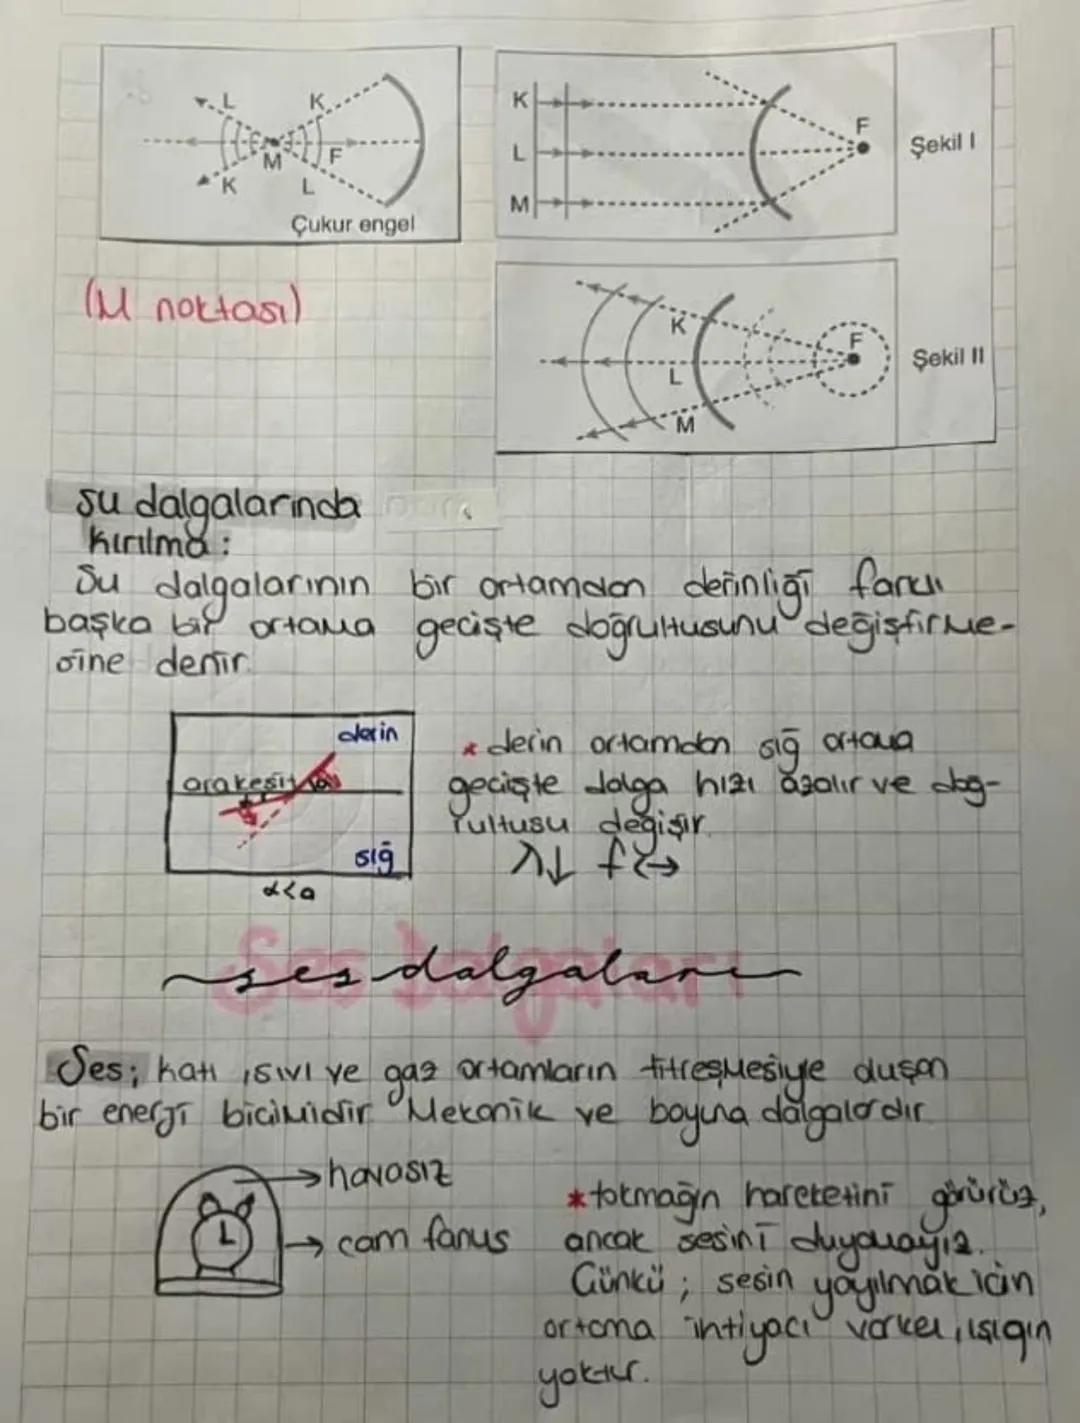 L K
M F
K L
Çukur engel
K
L
M
F
Şekil I
(M noktası)
K
L
M
F
Şekil II
su dalgalarında
kırılma:
Su dalgalarının bir ortamdan derinliği farklı
başka bir ortama geçişte doğrultusunu değiştirme-
sine denir.
derin
arakesit
sığ
α<a
* derin ortamdan sığ ortama
geçişte dalga hızı azalır ve doğ-
rultusu değişir.
λ↓ f→
Ses Dalgaları
ses dalgaları
Ses; katı, sıvı ve gaz ortamların titreşmesiyle oluşan
bir enerji biçimidir. Mekanik ve boyuna dalgalardır.
→ havasız
→ cam fanus
* tokmağın hareketini görürüz,
ancak sesini duymayız.
Günkü; sesin yayılmak için
ortama ihtiyacı varken, ışığın
yoktur.